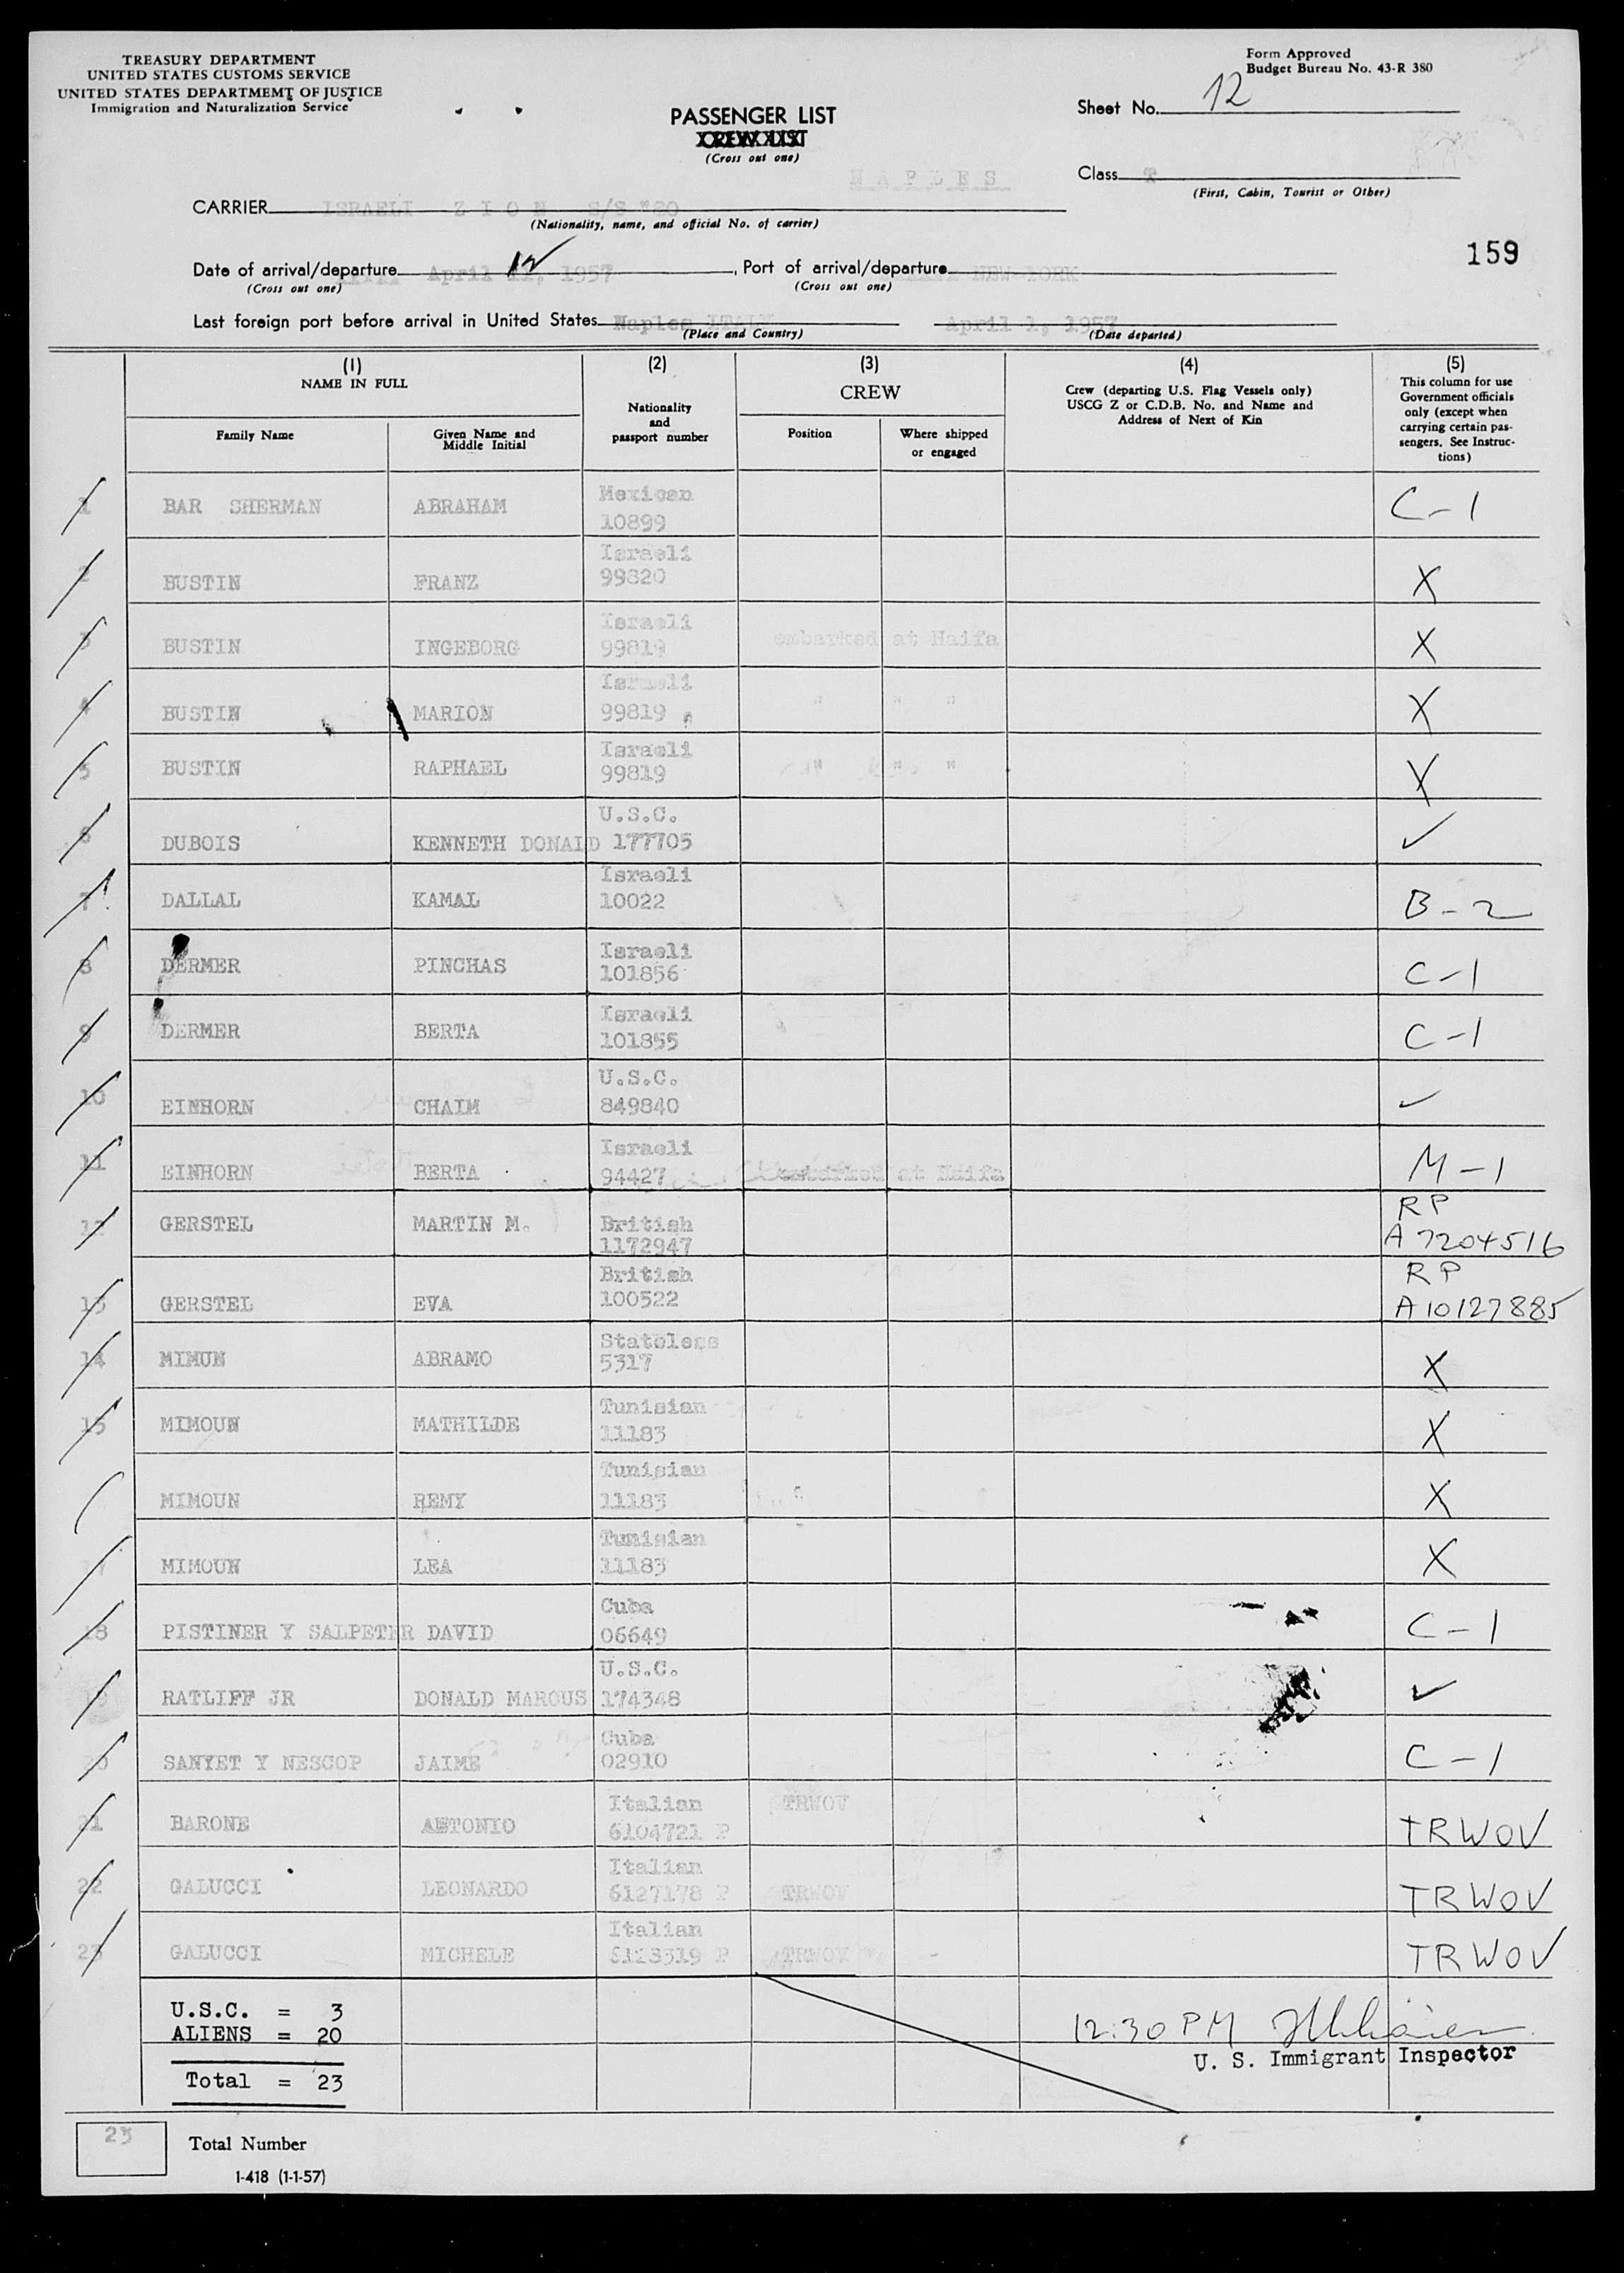 TREASURY DEPARTMENT
UNITED STATES CUSTOMS SERVICE
UNITED STATES DEPARTMEMT OF JUSTICE
Immigration and Naturalization Service
Form Approved
Budget Bureau No. 43-R 380
Sheet No. 12
PASSENGER LIST
CREW LIST
(Cross out one)
NAPLES
Class T
(First, Cabin, Tourist or Other)
CARRIER ISRAELI Z I O N S/S "20
(Nationality, name, and official No. of carrier)
159
Date of arrival/departure April 12, 1957, Port of arrival/departure NEW-YORK
(Cross out one) (Cross out one)
Last foreign port before arrival in United States Naples ITALY April 1, 1957
(Place and Country) (Date departed)
(1) NAME IN FULL
Family Name
Given Name and Middle Initial
(2) Nationality and passport number
(3) CREW
Position
Where shipped or engaged
(4) Crew (departing U.S. Flag Vessels only) USCG Z or C.D.B. No. and Name and Address of Next of Kin
(5) This column for use Government officials only (except when carrying certain passengers. See Instructions)
1 BAR SHERMAN ABRAHAM Mexican 10899 C-1
2 BUSTIN FRANZ Israeli 99820 X
3 BUSTIN INGEBORG Israeli 99819 embarked at Haifa X
4 BUSTIN MARION Israeli 99819 " " " X
5 BUSTIN RAPHAEL Israeli 99819 " " " X
6 DUBOIS KENNETH DONALD U.S.C. 177705 ✓
7 DALLAL KAMAL Israeli 10022 B-2
8 DERMER PINCHAS Israeli 101856 C-1
9 DERMER BERTA Israeli 101855 C-1
10 EINHORN CHAIM U.S.C. 849840 ✓
11 EINHORN BERTA Israeli 94427 embarked at Haifa M-1
12 GERSTEL MARTIN M. British 1172947 RP A7204516
13 GERSTEL EVA British 100522 RP A10127885
14 MIMUN ABRAMO Stateless 5317 X
15 MIMOUN MATHILDE Tunisian 11183 X
MIMOUN REMY Tunisian 11183 X
17 MIMOUN LEA Tunisian 11183 X
18 PISTINER Y SALPETER DAVID Cuba 06649 C-1
19 RATLIFF JR DONALD MARCUS U.S.C. 174348 ✓
20 SANYET Y NESCOP JAIME Cuba 02910 C-1
21 BARONE ANTONIO Italian 6104721 P TRWOV TRWOV
22 GALUCCI LEONARDO Italian 6127178 P TRWOV TRWOV
23 GALUCCI MICHELE Italian 6128319 P TRWOV TRWOV
U.S.C. = 3
ALIENS = 20
12:30 PM
U. S. Immigrant Inspector
Total = 23
23 Total Number
I-418 (1-1-57)